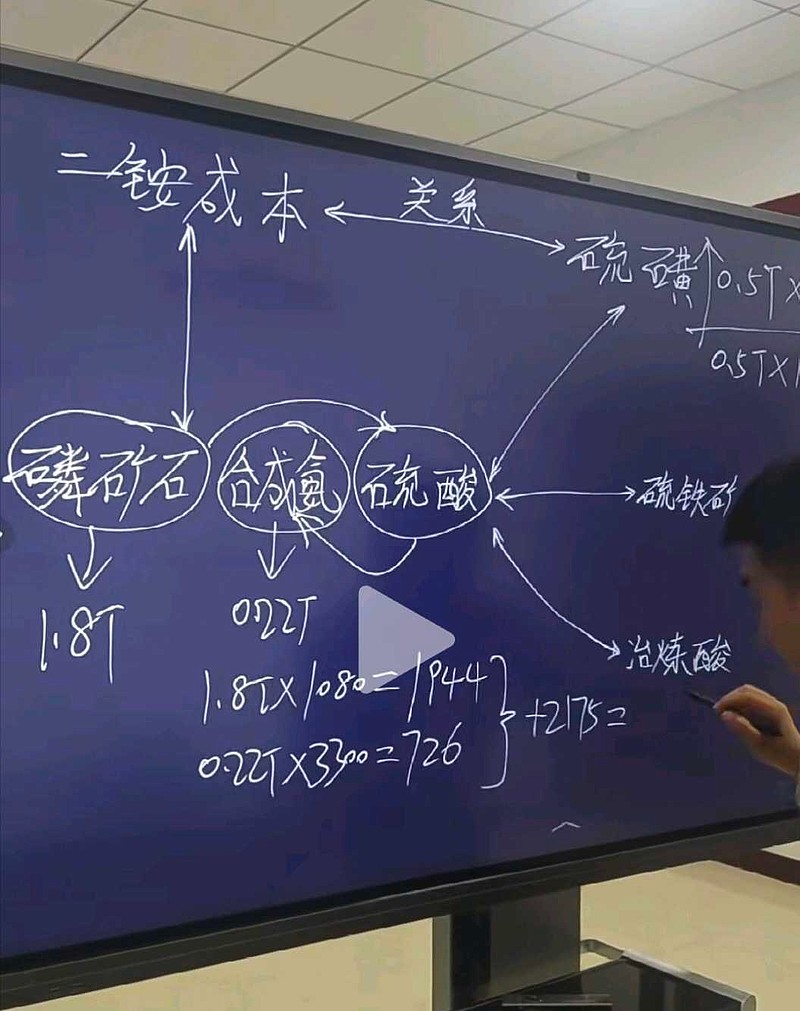 二铵成本
关系
硫磺 0.5T×
0.5T×1
磷矿石
合成氨
硫酸
硫铁矿
1.8T
0.22T
冶炼酸
1.8T×1080=1944
0.22T×3300=726
+2175=